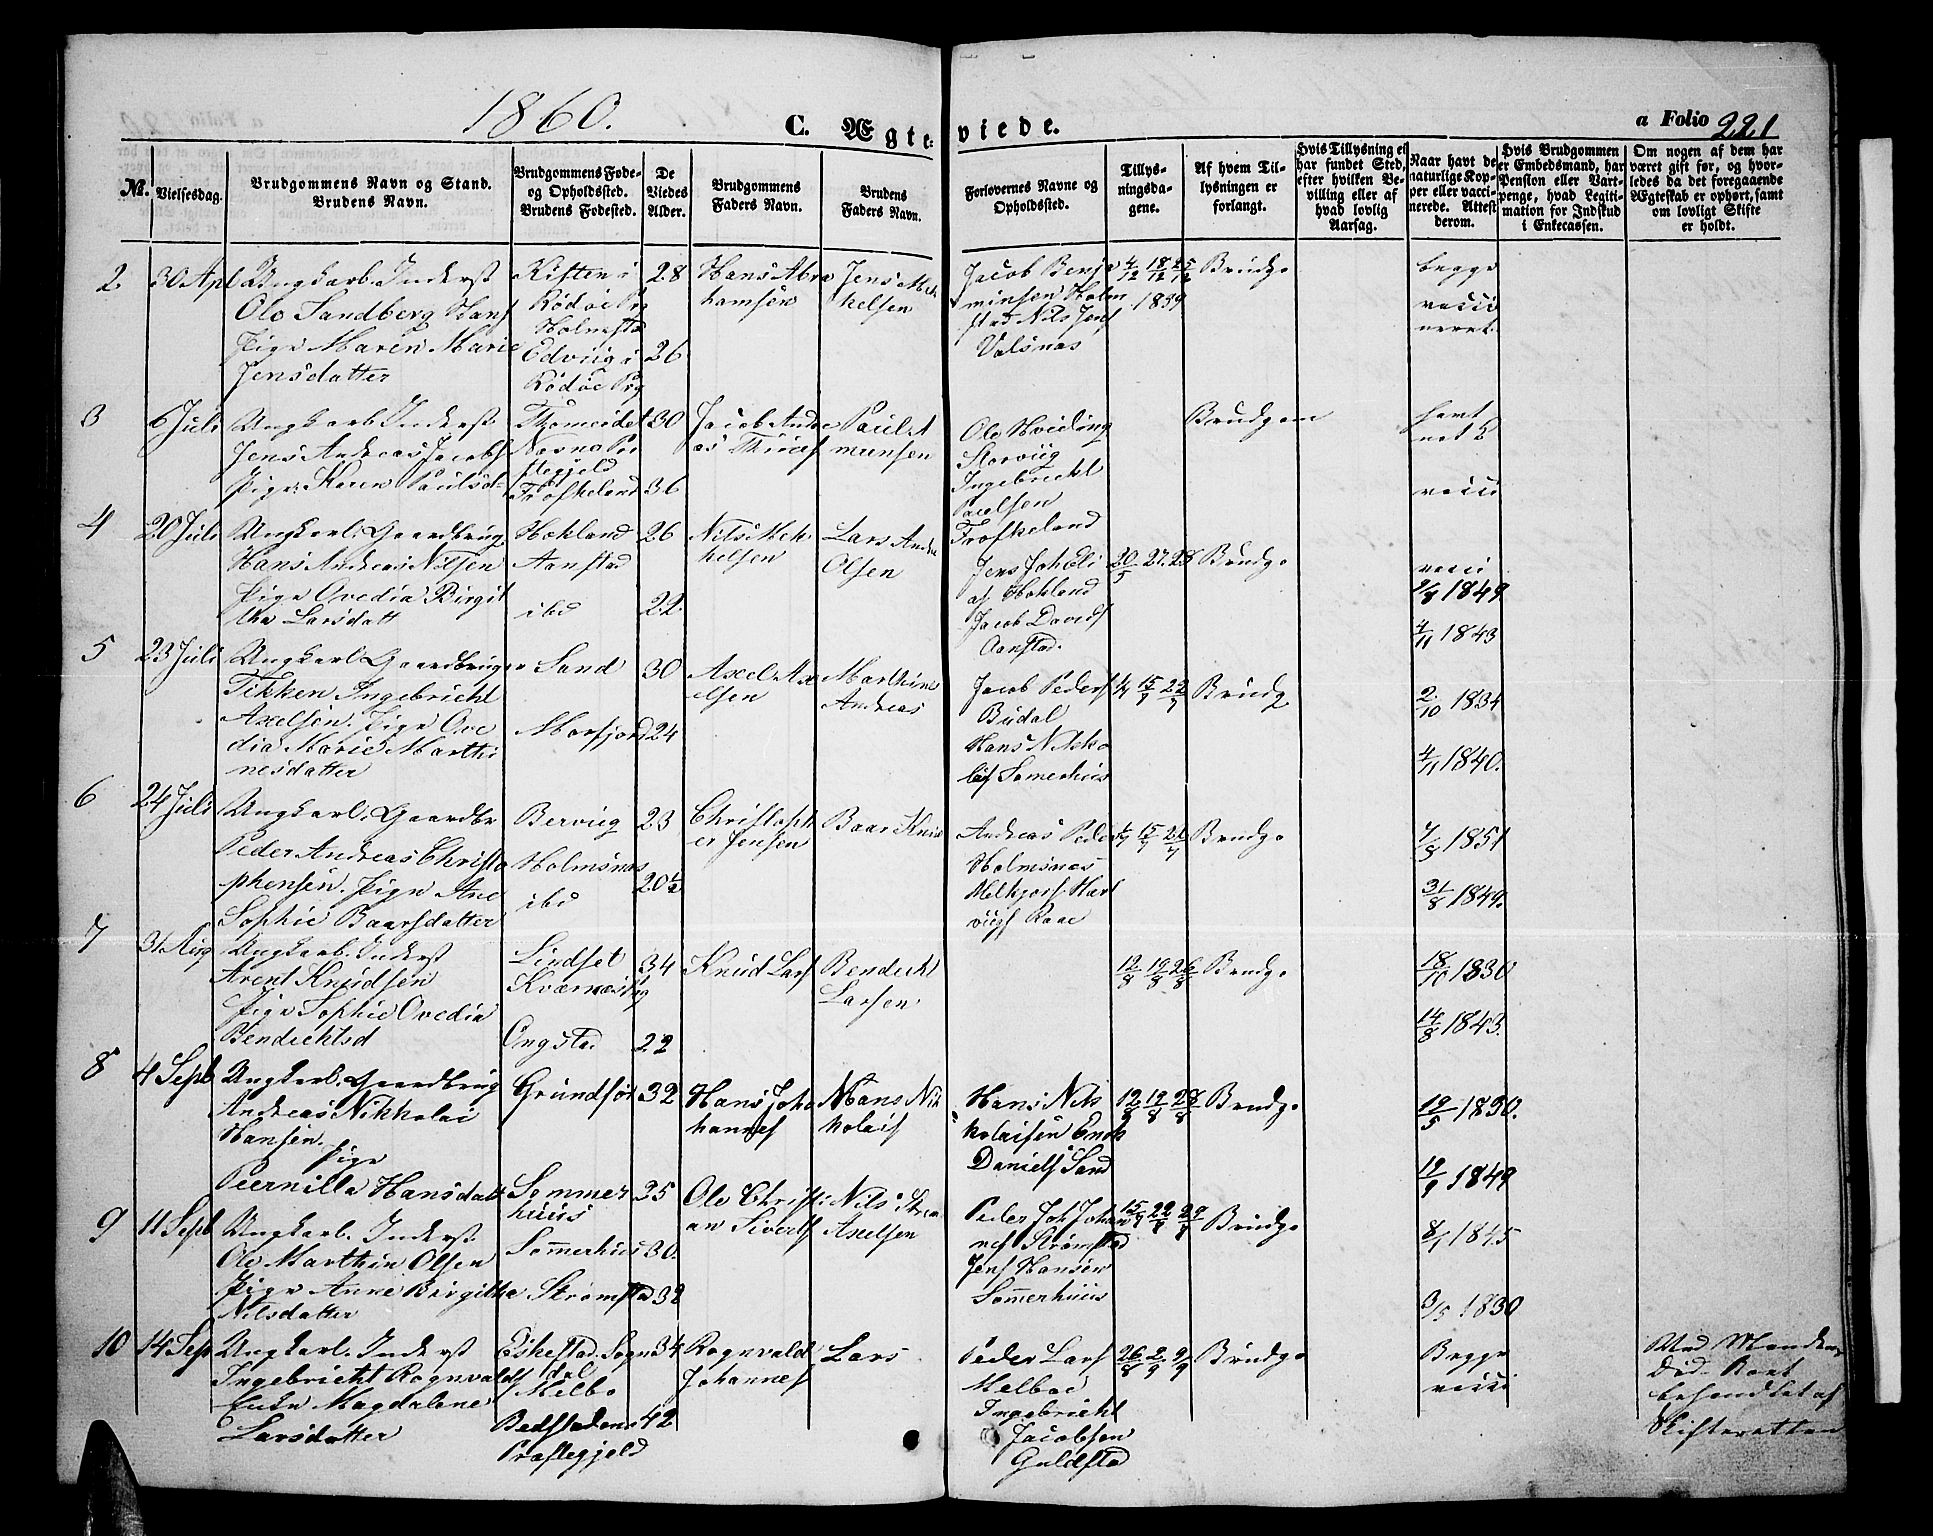 1860.
C. Ægte-
viede.
a Folio 221
Nr.
Vielsesdag.
Brudgommens Navn og Stand.
Brudens Navn.
Brudgommens Føde-
og Opholdssted.
Brudens Fødested.
De
Viedes
Alder.
Brudgommens
Faders Navn.
Brudens
Faders Navn.
Forlovernes Navne og
Opholdssted.
Tillys-
ningsda-
gene.
Af hvem Til-
lysningen er
forlangt.
Hvis Tillysning ei
har fundet Sted,
efter hvilken Be-
villing eller af
hvad lovlig
Aarsag.
Naar havt de
naturlige Kop-
per eller vacci-
nerede. Attest
derom.
Hvis Brudgommen
er Embedsmand, har
Pension eller Vart-
penge, hvad Legiti-
mation for Indskud
i Enkecassen.
Om nogen af dem har
været gift før, og hvor-
ledes da det foregaaende
Ægteskab er ophørt, samt
om lovligt Skifte
er holdt.
2 30 Apl Ungkarl. Inderst
Ole Sandberg Hans
Pige Maren Marie
Jensdatter
Kisten i
Rödöe Prg
Holmstad
Edviig i
Rödöe Prg
28
26
Hans Abra
hamsen
Jens Mik
kelsen
Jacob Benja
minsen Holm
stad Nils Jens
Valsnæs
4/12 18/12 25/12
1859
Brudg.
begge
vacci
neret.
3 6 Juli Ungkarl Inderst
Jens Andreas Jacobs
Pige Karen Paulsd
Thomeidet
Næsna Præ
stegjeld
Froskeland
30
36
Jacob Andre
as
Paul A
munsen
Ole Hveding
Storviig
Ingebrickt
Paulsen
Froskeland
Brudgom
havt
nat k
vacci
4 20 Juli Ungkarl. Gaardbrug
Hans Andreas Nilsen
Pige Ovedia Birgit
tha Larsdatt
Hokland
Aanstad
ibd
26
22
Nils Mik
kelsen
Lars Andr
Olsen
Jens Joh Eli
af Hokland
Jacob Davids
Aanstad.
20/5 27. 28
Brudg.
vacci
9/8 1849
4/11 1843
5 23 Juli Ungkarl Gaardbruger
Tikken Ingebricht
Axelsen. Pige Ove
dia Marie Marthi
nesdatter
Sand
Morfjord
30
24
Axel Ax
elsen
Marthin
Andreas
Jacob Peders
Budal
Hans Nikko
lais Somerhuus
1/7 15/7 22/7
Brudg
2/10 1834
4/11 1840.
6 24 Juli Ungkarl. Gaardbr
Peder Andreas Christo
phensen. Pige Ane
Sophie Baarsdatter
Berviig
Holmsnæs
ibd
23
20 1/2
Christoph
er Jensen
Baar Knud
Andreas Peder
Holmsnæs
Melkjors Hart
viigs Raae
1/7 15/7 22/7
Brudg.
7/8 1851
31/8 1849.
7 31 Aug Ungkarl. Inderst
Arent Knudsen
Pige Sophie Ovedia
Bendichtsd
Lindset
Kværnæs Prg
Ongstad
34
22
Knud Lars
Bendickt
Larsen
12/8 19/8 26/8
Brudg.
18/10 1830
14/8 1843.
8 4 Septb Ungkarl. Gaardbrug
Andreas Nikkolai
Hansen.
Pige
Peernilla Hansdatt
Grundför
Sommer
huus
32
25
Hans Joha
hannes
Hans Nik
kolais
Hans Nik
kolaisen Enok
Daniels Sand
12/8 19/8 28/8
Brudg.
19/5 1830.
12/9 1849
9 11 Septb Ungkarl. Inderst
Ole Marthin Olsen
Pige Anne Birgitha
Nilsdatter
Sommerhuus
Strömstad
30.
32
Ole Christi
an Siverts
Nils
Axelsen
Peder Joh Johan
nes Strømstad
Jens Hansen
Sommerhuus
15/7 22/7 29/7
Brudg.
8/1 1845
3/5 1830
10 14 Sep Ungkarl. Inderst
Ingebricht Rognvalds
Enke Magdalene
Larsdatter
Eskestad. Sogn
Melbo
Badstadens
Præstegjeld
34
42
Rognvald
Johannes
Lars
Peder Lars
Melboe
Ingebricht
Jacobsen
Guldstad
26/8 2/9 9/9
Brudg.
Begge
vacci
Ved Manden
Död. Boet
behandlet af
Skifteretten